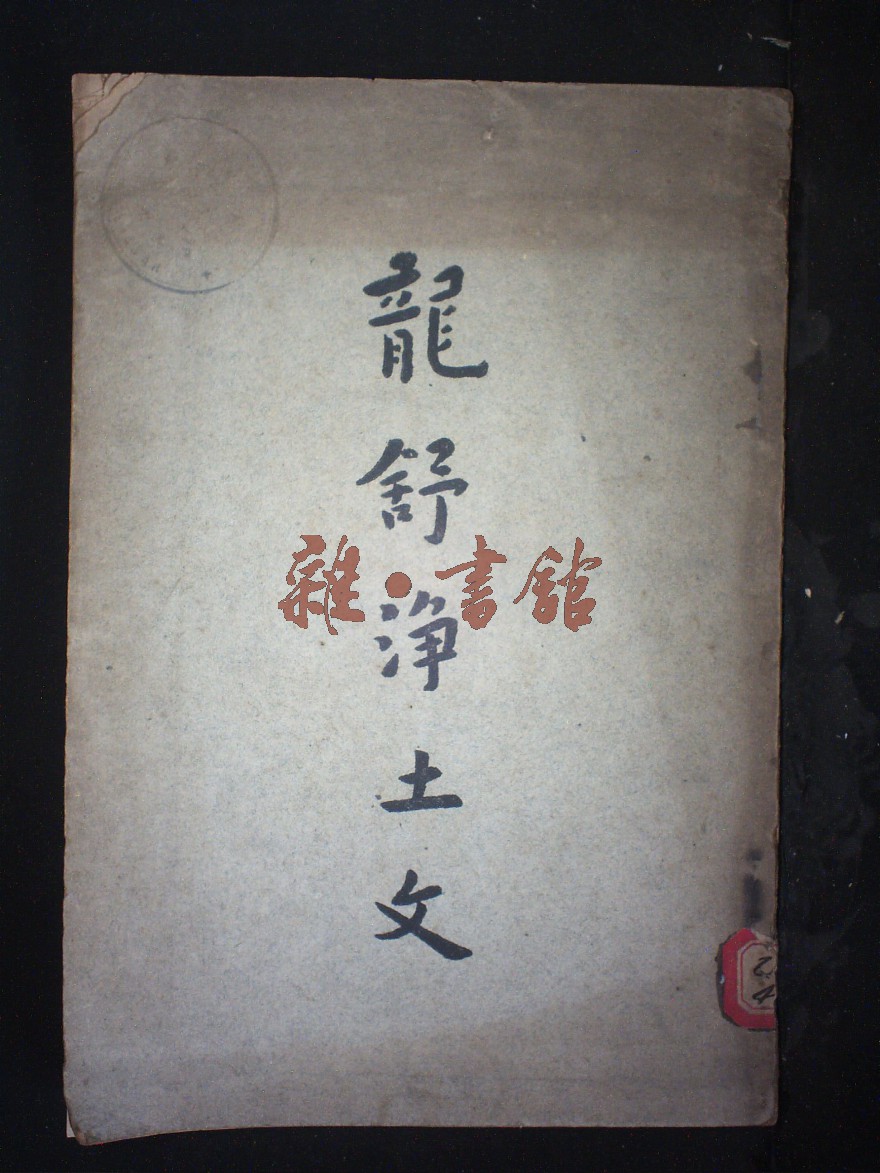 龍舒淨土文
雜·書館